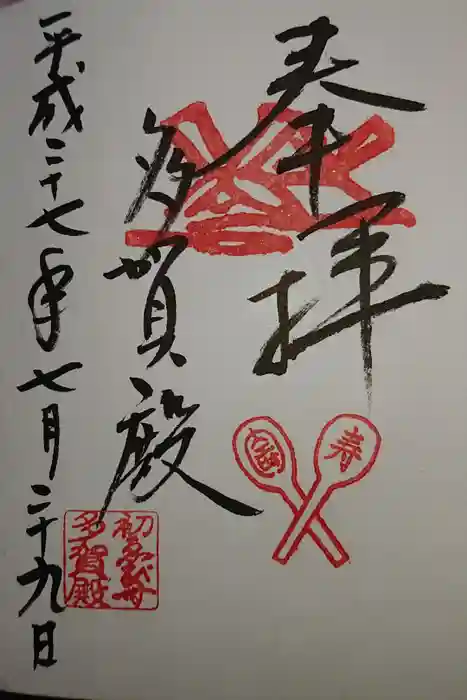 奉拝
多賀殿
平成二十七年七月二十九日
寿
多賀殿